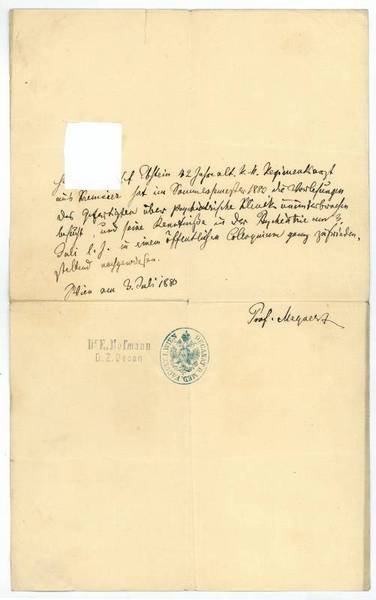 Ebstein 42 Jahre alt, k. k. Regimentsarzt
aus hat im Sommersemester 1880 die Vorlesungen
des Gefertigten über psychiatrische Klinik ununterbrochen
besucht, und seine Kenntniße in der Psychiatrie am 3.
Juli l. J. in einem öffentlichen Colloquium ganz zufrieden-
stellend nachgewiesen.
Wien am 3. Juli 1880
Prof. Meynert
Dr. E. Hofmann
D. Z. Decan
DECANAT D. MED. FACULTÄT WIEN